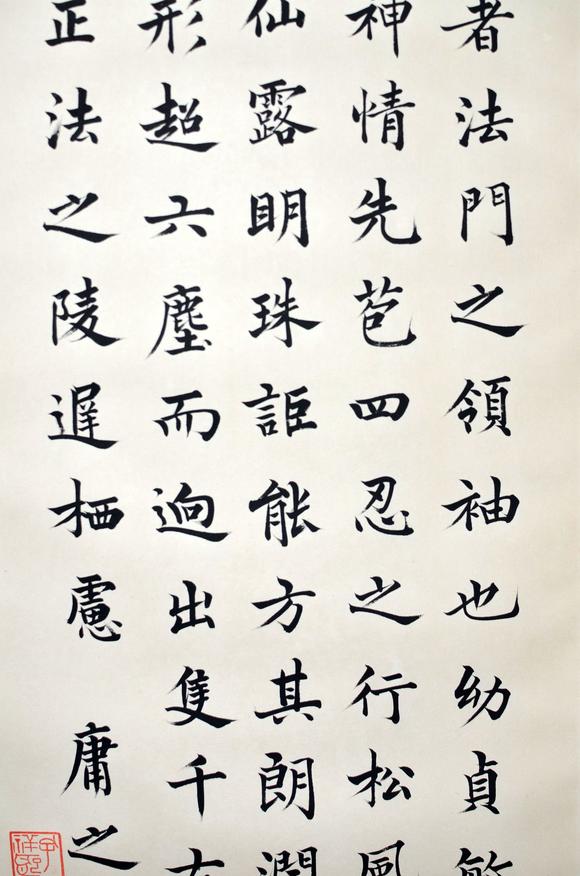 者法門之領袖也幼貞敏
神情先苞四忍之行松風
仙露明珠詎能方其朗潤
形超六塵而迥出隻千
正法之陵遲栖慮 庸之